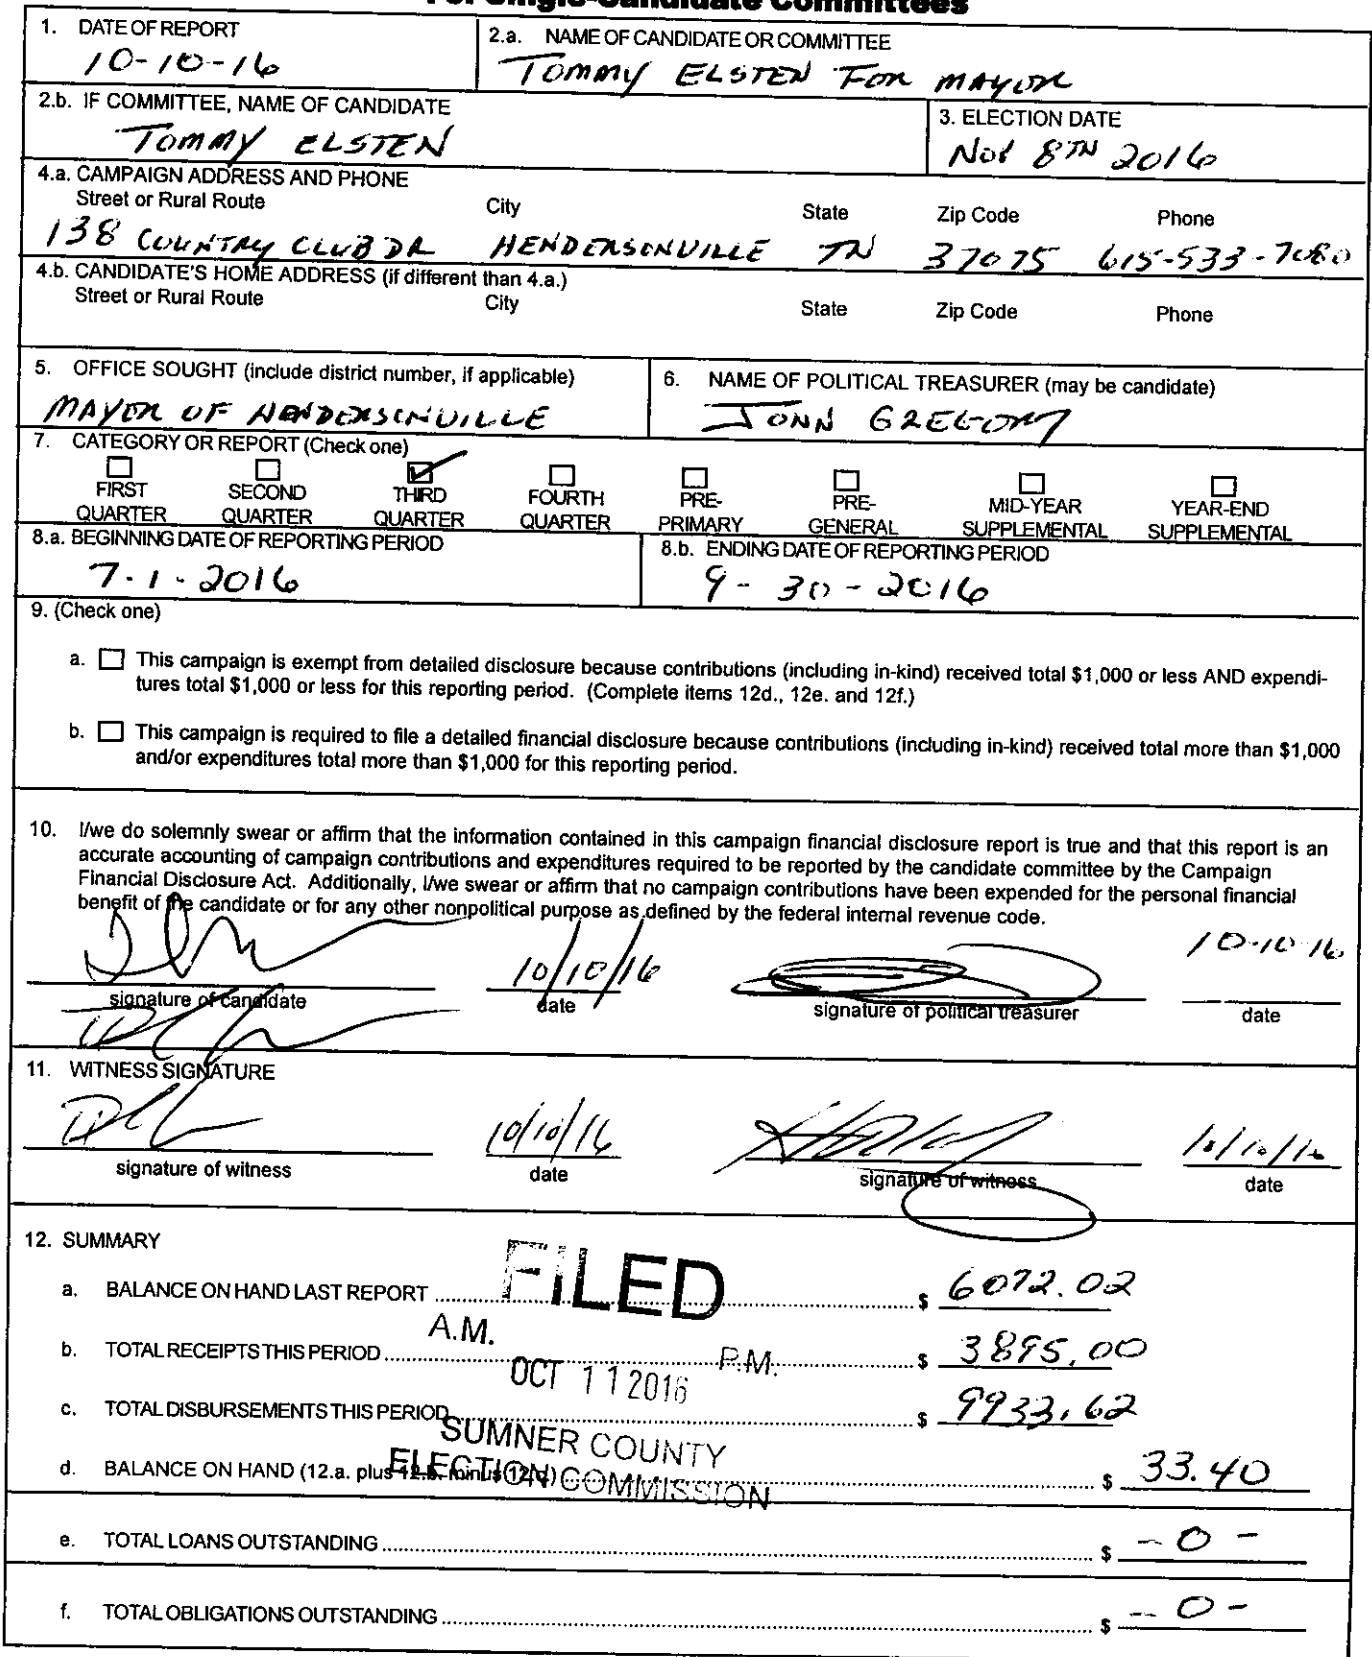 For Single-Candidate Committees
1. DATE OF REPORT
10-10-16
2.a. NAME OF CANDIDATE OR COMMITTEE
TOMMY ELSTEN FOR MAYOR
2.b. IF COMMITTEE, NAME OF CANDIDATE
TOMMY ELSTEN
3. ELECTION DATE
NOV 8TH 2016
4.a. CAMPAIGN ADDRESS AND PHONE
Street or Rural Route City State Zip Code Phone
138 COUNTRY CLUB DR HENDERSONVILLE TN 37075 615-533-7080
4.b. CANDIDATE'S HOME ADDRESS (if different than 4.a.)
Street or Rural Route City State Zip Code Phone
5. OFFICE SOUGHT (include district number, if applicable)
MAYOR OF HENDERSONVILLE
6. NAME OF POLITICAL TREASURER (may be candidate)
JOHN GREGORY
7. CATEGORY OR REPORT (Check one)
FIRST QUARTER
SECOND QUARTER
THIRD QUARTER
FOURTH QUARTER
PRE-PRIMARY
PRE-GENERAL
MID-YEAR SUPPLEMENTAL
YEAR-END SUPPLEMENTAL
8.a. BEGINNING DATE OF REPORTING PERIOD
7-1-2016
8.b. ENDING DATE OF REPORTING PERIOD
9-30-2016
9. (Check one)
a. This campaign is exempt from detailed disclosure because contributions (including in-kind) received total $1,000 or less AND expendi-
tures total $1,000 or less for this reporting period. (Complete items 12d., 12e. and 12f.)
b. This campaign is required to file a detailed financial disclosure because contributions (including in-kind) received total more than $1,000
and/or expenditures total more than $1,000 for this reporting period.
10. I/we do solemnly swear or affirm that the information contained in this campaign financial disclosure report is true and that this report is an
accurate accounting of campaign contributions and expenditures required to be reported by the candidate committee by the Campaign
Financial Disclosure Act. Additionally, I/we swear or affirm that no campaign contributions have been expended for the personal financial
benefit of the candidate or for any other nonpolitical purpose as defined by the federal internal revenue code.
10/10/16 10-10-16
signature of candidate date signature of political treasurer date
11. WITNESS SIGNATURE
10/10/16 10/10/16
signature of witness date signature of witness date
12. SUMMARY
FILED
a. BALANCE ON HAND LAST REPORT $ 6072.02
A.M. P.M.
b. TOTAL RECEIPTS THIS PERIOD $ 3895.00
OCT 11 2016
c. TOTAL DISBURSEMENTS THIS PERIOD $ 9933.62
SUMNER COUNTY
ELECTION COMMISSION
d. BALANCE ON HAND (12.a. plus 12.b. minus 12.c.) $ 33.40
e. TOTAL LOANS OUTSTANDING $ -0-
f. TOTAL OBLIGATIONS OUTSTANDING $ -0-